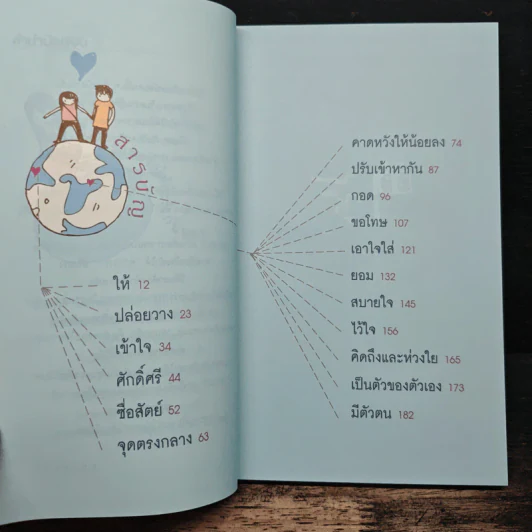 สารบัญ
ให้ 12
ปล่อยวาง 23
เข้าใจ 34
ศักดิ์ศรี 44
ซื่อสัตย์ 52
จุดตรงกลาง 63
คาดหวังให้น้อยลง 74
ปรับเข้าหากัน 87
กอด 96
ขอโทษ 107
เอาใจใส่ 121
ยอม 132
สบายใจ 145
ไว้ใจ 156
คิดถึงและห่วงใย 165
เป็นตัวของตัวเอง 173
มีตัวตน 182